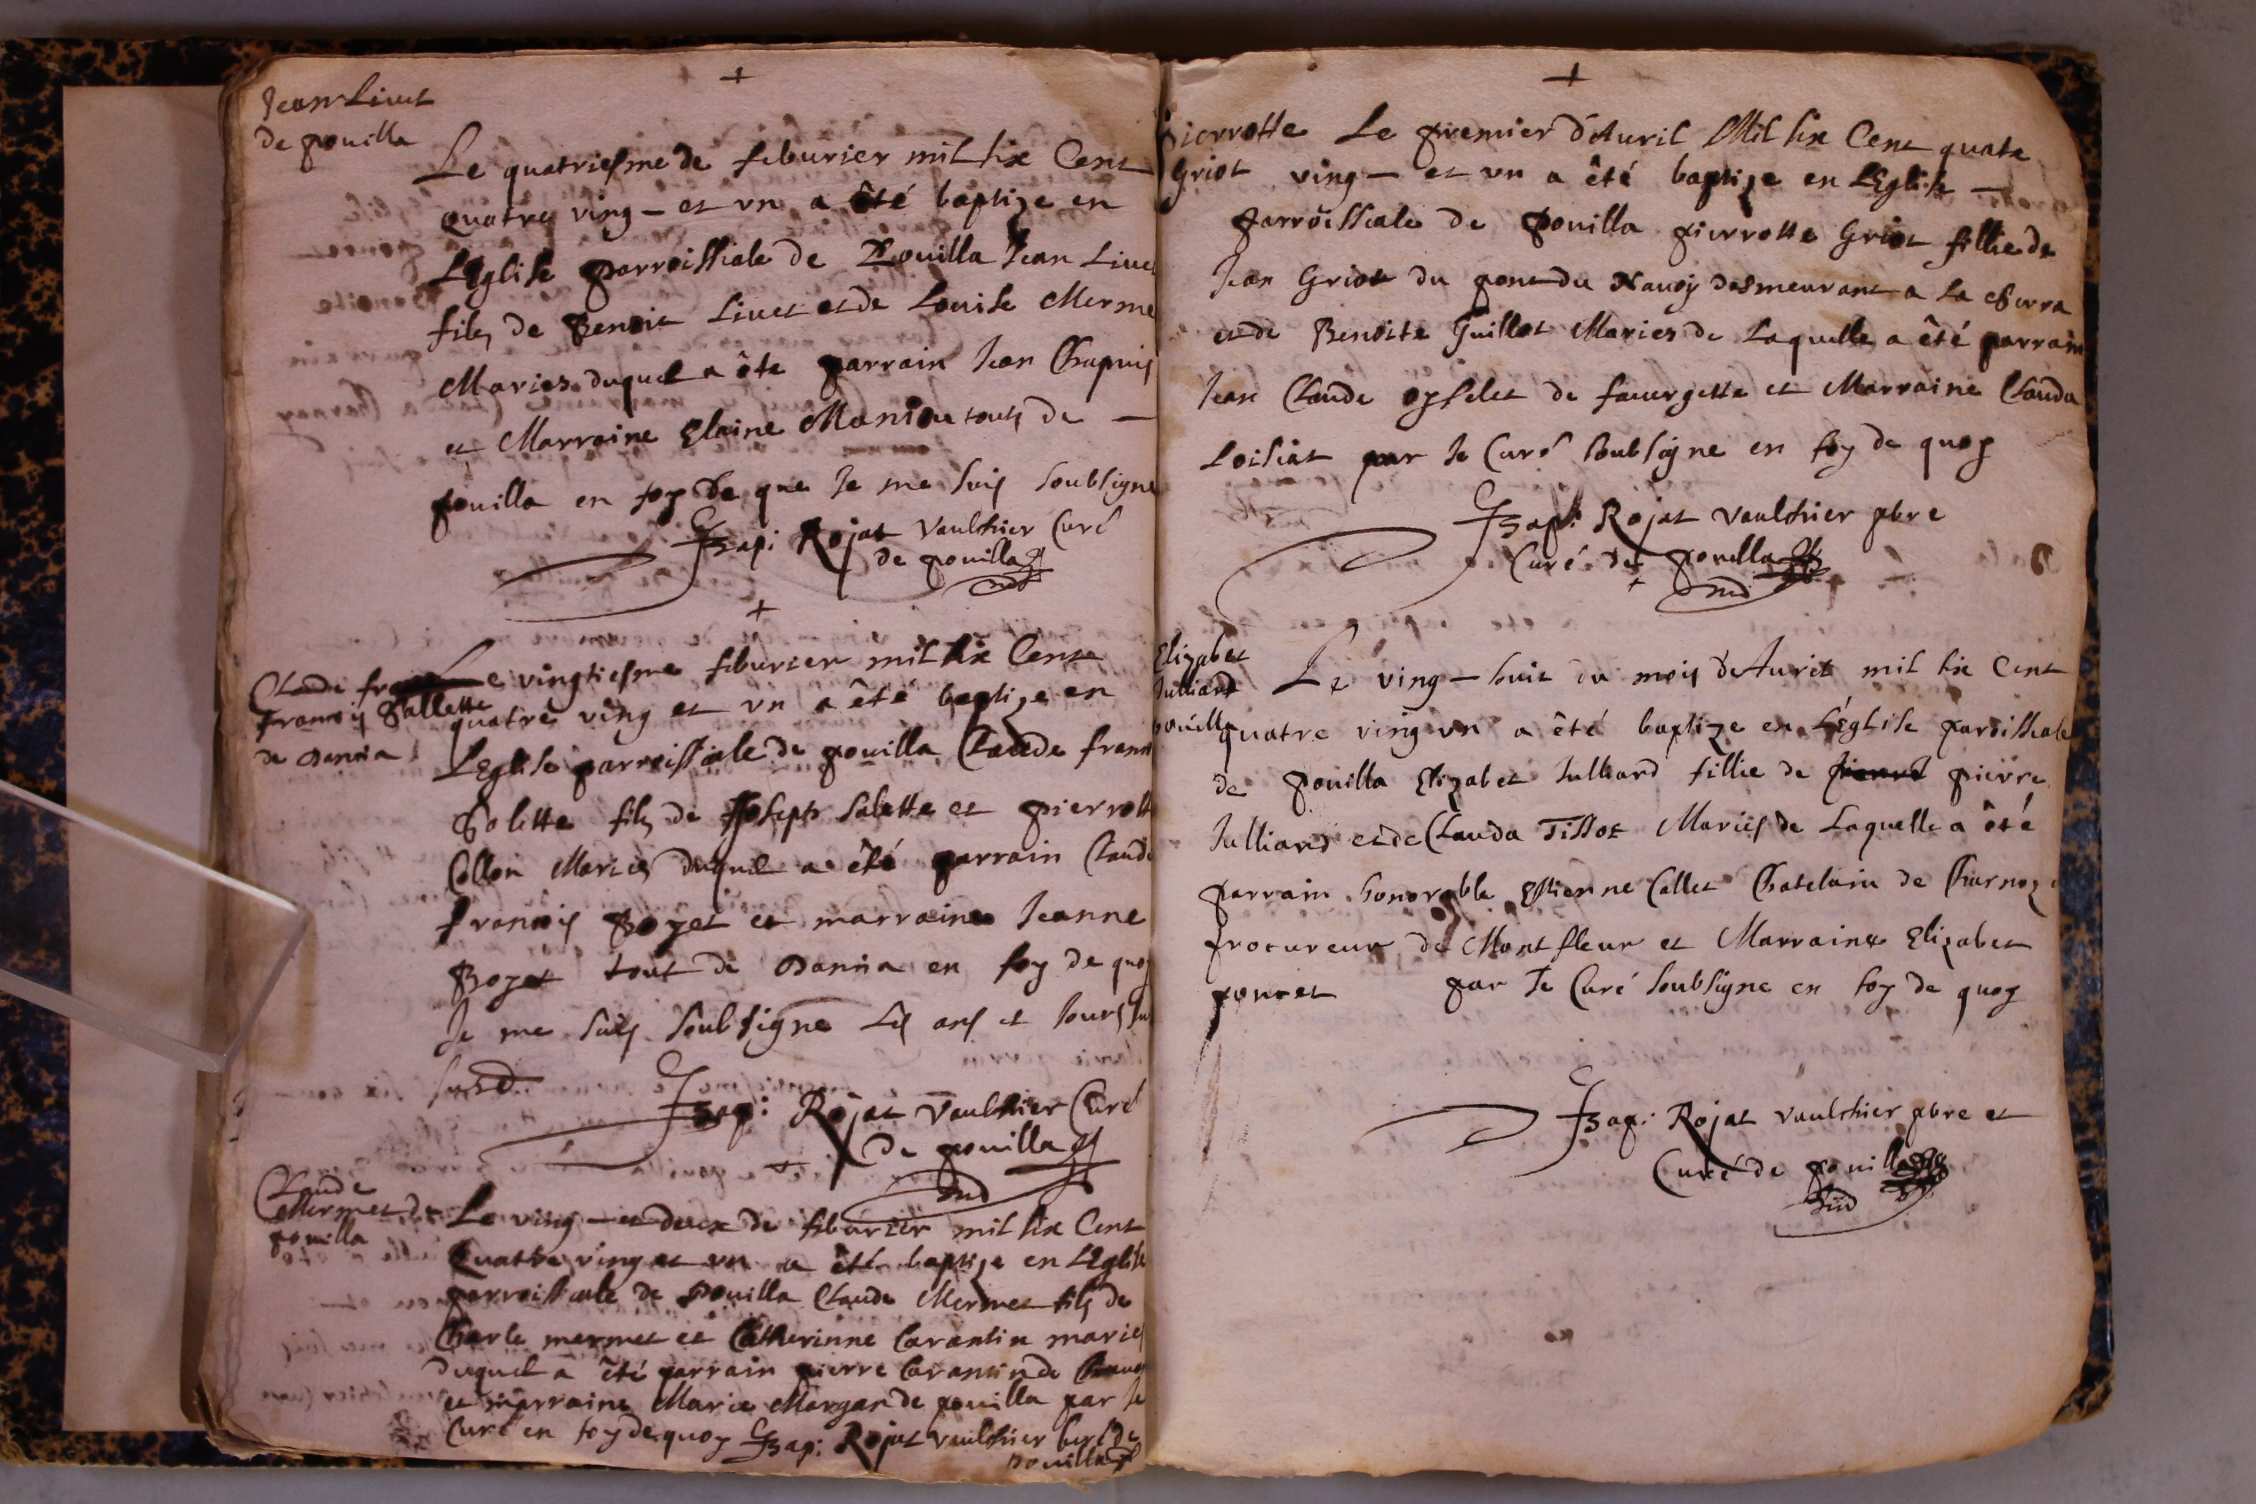 Jean Livet
de pouilla
Le quatriesme de feburier mil six Cent
quatre ving – et vn a êté baptize en
LEglise parroissiale de Pouilla Jean Livet
fils de Benoit Livet et de Louise Merme
Maries duquel a ête parrain Jean Chapuis
et Marraine Elaine Maniou touts de –
pouilla en foy de que Je me suis soubsigne
JBap: Rojat Vaulchier Curé
de pouilla
Claude
Francois Sallette
de Dannia
Le vingtiesme feburier mil six Cent
quatre ving et vn a êté baptize en
LEglise parroissiale de pouilla Claude franc
Solette fils de Joseph Salette et pierrott
Collon Maries duquel a êté parrain Claude
francois Boyet et marraine Jeanne
Boyet tout de Dannia en foy de quoy
Je me suis soubsigne Les ans et Jours sus
susd
JBap: Rojat Vaulchier Curé
de pouilla
Claude
Mermet de
pouilla
Le ving – et deux de feburier mil six Cent
Quatre ving et vn a êté baptize en LEglise
parroissiale de Pouilla Claude Mermet fils de
Charle mermet et Catherinne Carantin maries
duquel a êté parrain pierre Carantin de
et marraine Marie Morgar de pouilla par Je
Curé en foy de quoy JBap: Rojat vaulchier Curé de
pouilla
Pierrotte
Griot
Le premier d'Auril Mil six Cent quatre
ving – et vn a êté baptize en LEglise –
parroissiale de Pouilla pierrotte Griot fillie de
Jean Griot du pont du Nauoy desmeurant a la Serra
et de Benoite Guillot Maries de Laquelle a êté parrain
Jean Claude de fauergette et Marraine Clauda
Loisiat par Je Curé soubsigne en foy de quoy
JBap: Rojat Vaulchier pbre
Curé de pouilla
Elizabet
Julliard
pouilla
Le ving – huit du mois d'Auril mil six Cent
quatre ving vn a êté baptize en L'Église paroissiale
de pouilla Elizabet Julliard fillie de pierre
Julliard et de Clauda Tissot Maries de Laquelle a êté
parrain honorable Estienne Collet Chatelain de Charnoz
procureur de Montfleur et Marraine Elizabet
poncet par Je Curé soubsigne en foy de quoy
JBap: Rojat Vaulchier pbre et
Curé de pouilla